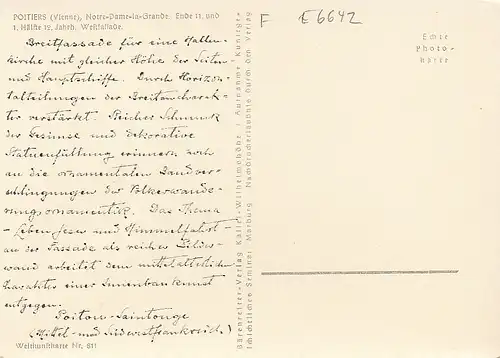 POITIERS (Vienne), Notre-Dame-la-Grande. Ende 11. und
1. Hälfte 12. Jahrh. Westfassade.
Breitfassade für eine Hallen-
kirche mit gleicher Höhe der Seiten-
und Hauptschiffe. Durch Horizon-
talteilungen der Breitencharak-
ter verstärkt. Reicher Schmuck
der Gesimse und dekorative
Statuenfüllung erinnern noch
an die ornamentalen Bandver-
schlingungen der Völkerwande-
rungsornamentik. Das Thema
- Leben Jesu und Himmelfahrt -
an der Fassade als reiche Bilder-
wand arbeitet dem mittelalterlichen
Charakter einer Innenbaukunst
entgegen.
Poitou-Saintonge
(Mittel- und Südwestfrankreich)
Weltkunstkarte Nr. 811
Bärenreiter-Verlag Kassel-Wilhelmshöhe / Aufnahme Kunstge-
schichtliches Seminar Marburg. Nachdruckerlaubnis durch den Verlag
F E6642
Echte
Photo-
karte